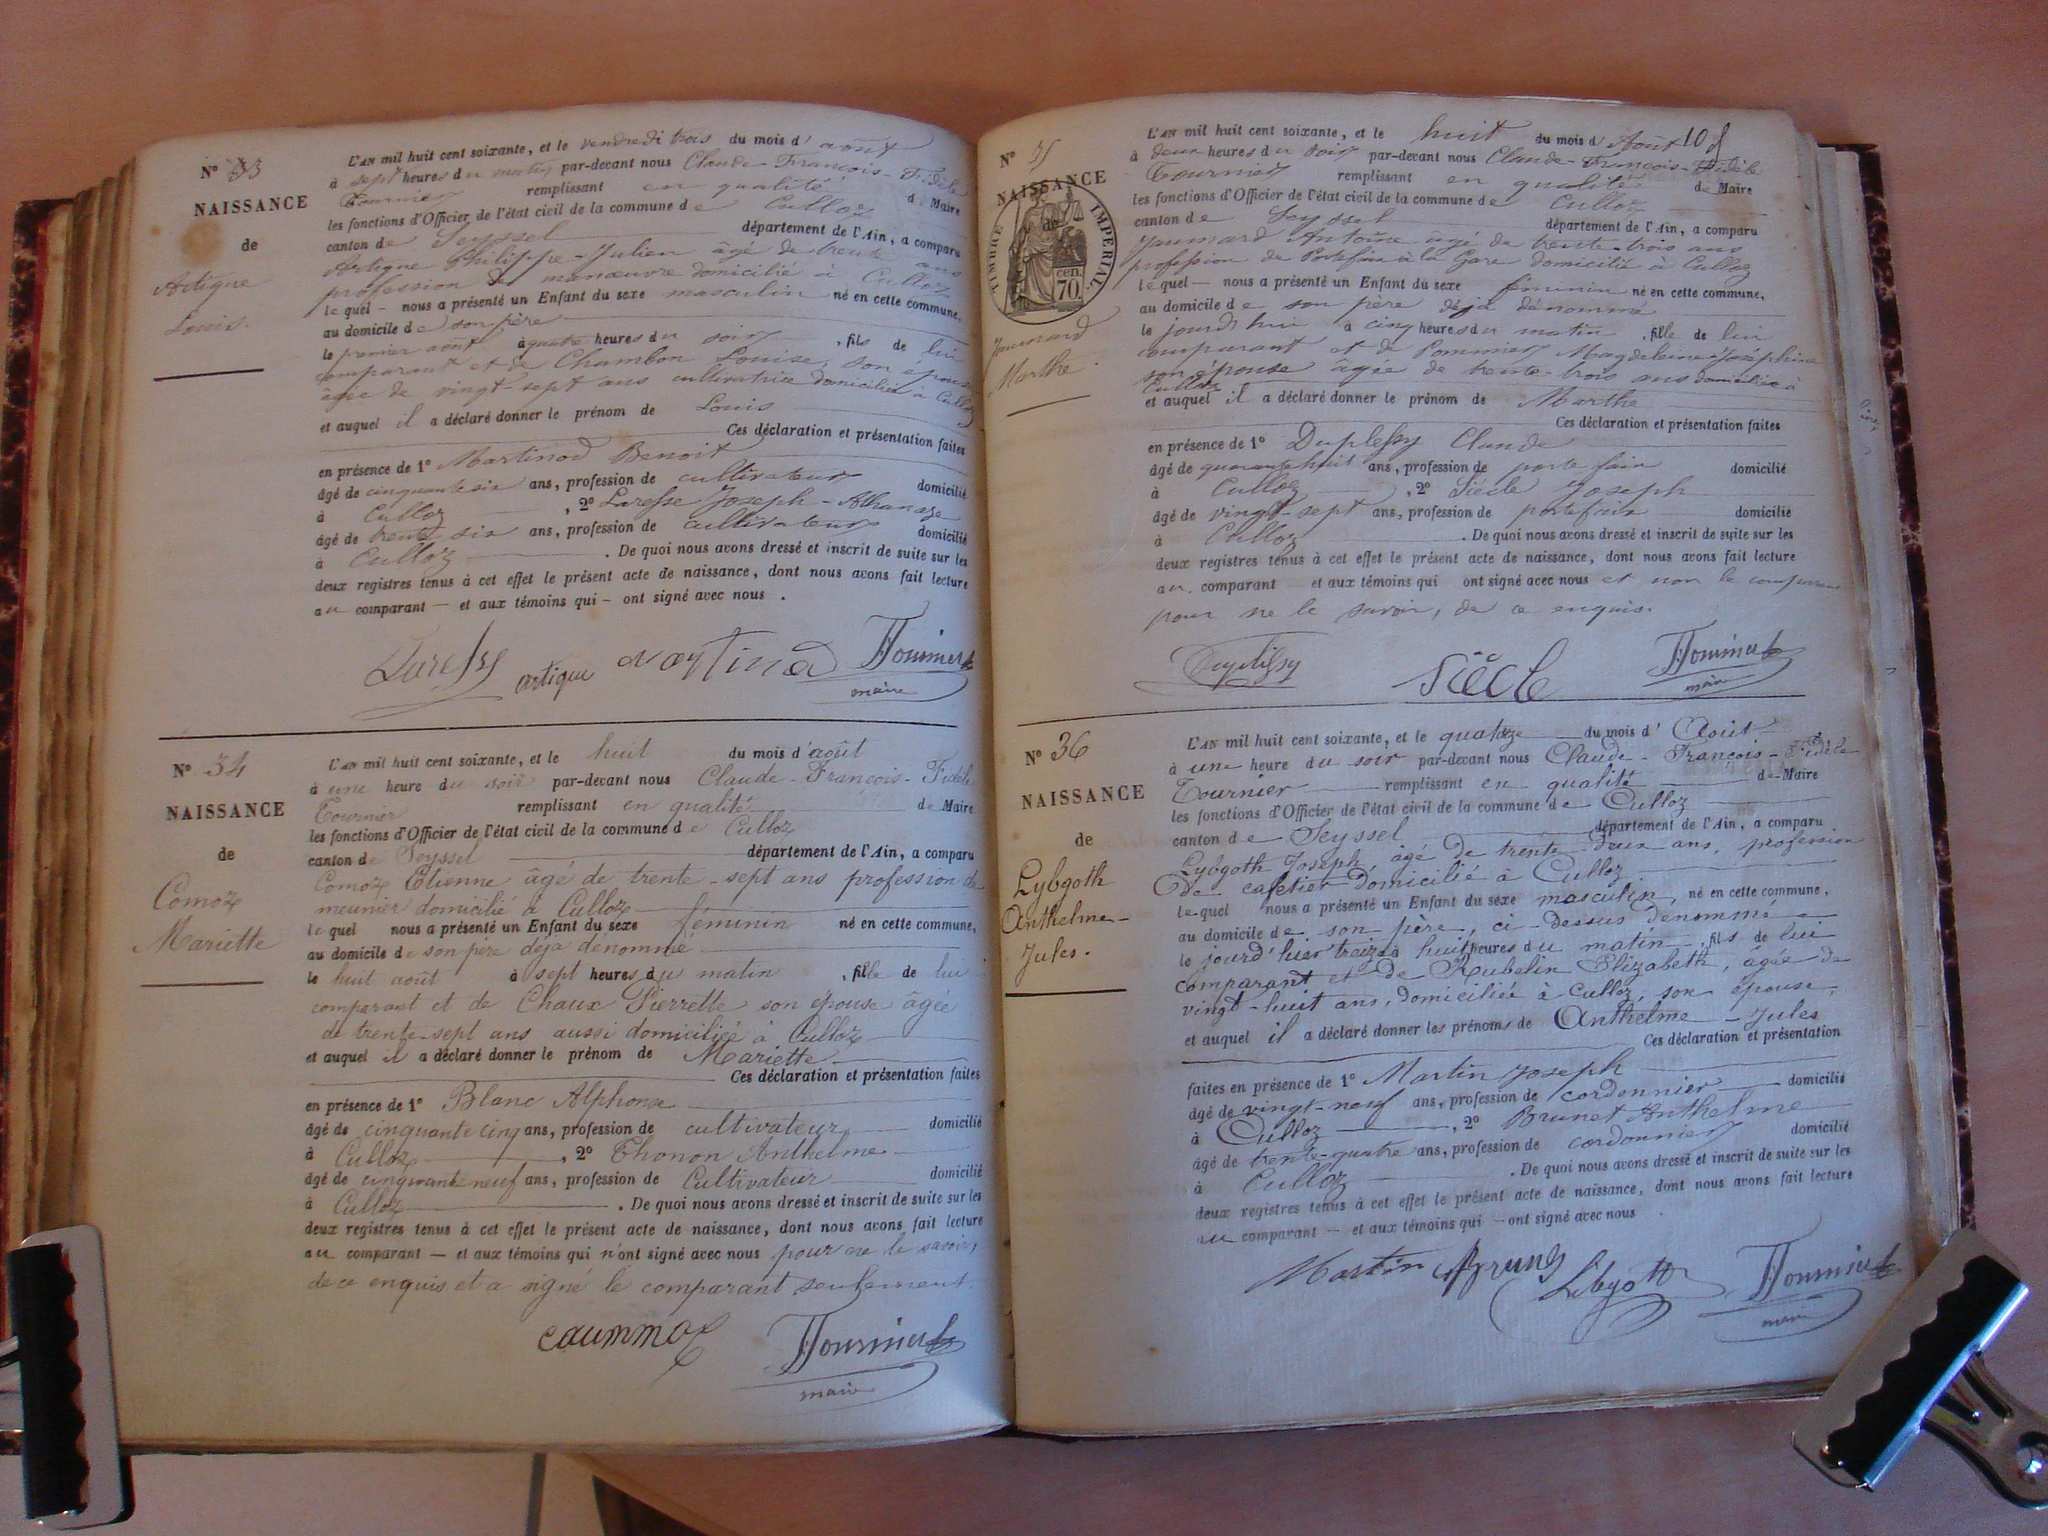 N° 33
NAISSANCE
de
Artigue
Louis.
L'AN mil huit cent soixante, et le vendredi trois du mois d'août
à sept heures du matin par-devant nous Claude-François-Fidèle
Tournier remplissant en qualité de Maire
les fonctions d'Officier de l'état civil de la commune de Culloz
canton de Seyssel département de l'Ain, a comparu
Artigue Philippe-Julien âgé de trente ans
profession de manœuvre domicilié à Culloz
lequel — nous a présenté un Enfant du sexe masculin né en cette commune,
au domicile de son père
le premier août à quatre heures du soir, fils de lui
comparant et de Chambon Louise, son épouse
âgée de vingt-sept ans cultivatrice domiciliée à Culloz
et auquel il a déclaré donner le prénom de Louis
Ces déclaration et présentation faites
en présence de 1° Martinod Benoit
âgé de cinquante six ans, profession de cultivateur domicilié
à Culloz, 2° Joseph-Athanaze
âgé de trente six ans, profession de cultivateur domicilié
à Culloz. De quoi nous avons dressé et inscrit de suite sur les
deux registres tenus à cet effet le présent acte de naissance, dont nous avons fait lecture
au comparant — et aux témoins qui — ont signé avec nous.
artigue Martinod Tournier
maire
N° 34
NAISSANCE
de
Comoz
Mariette
L'AN mil huit cent soixante, et le huit du mois d'août
à une heure du soir par-devant nous Claude-François-Fidèle
Tournier remplissant en qualité de Maire
les fonctions d'Officier de l'état civil de la commune de Culloz
canton de Seyssel département de l'Ain, a comparu
Comoz Etienne âgé de trente-sept ans profession de
meunier domicilié à Culloz
lequel nous a présenté un Enfant du sexe féminin né en cette commune,
au domicile de son père déjà dénommé
le huit août à sept heures du matin, fille de lui
comparant et de Chaux Pierrette son épouse âgée
de trente-sept ans aussi domiciliée à Culloz
et auquel il a déclaré donner le prénom de Mariette
Ces déclaration et présentation faites
en présence de 1° Blanc Alphonse
âgé de cinquante cinq ans, profession de cultivateur domicilié
à Culloz, 2° Thonon Anthelme
âgé de cinquante neuf ans, profession de Cultivateur domicilié
à Culloz. De quoi nous avons dressé et inscrit de suite sur les
deux registres tenus à cet effet le présent acte de naissance, dont nous avons fait lecture
au comparant — et aux témoins qui n'ont signé avec nous pour ne le savoir,
de ce enquis et a signé le comparant seulement.
caummoz Tournier
maire
108
N° 35
NAISSANCE
de
TIMBRE IMPERIAL
70 cen.
Jaumard
Marthe.
L'AN mil huit cent soixante, et le huit du mois d'Août
à deux heures du soir par-devant nous Claude-François-Fidèle
Tournier remplissant en qualité de Maire
les fonctions d'Officier de l'état civil de la commune de Culloz
canton de Seyssel département de l'Ain, a comparu
Jaumard Antoine âgé de trente-trois ans
profession de Portefaix à la Gare domicilié à Culloz
lequel — nous a présenté un Enfant du sexe féminin né en cette commune,
au domicile de son père déjà dénommé
le jourd'hui à cinq heures du matin, fille de lui
comparant et de Pommier Magdeleine-Joséphine
son épouse âgée de trente-trois ans domiciliée à
Culloz
et auquel il a déclaré donner le prénom de Marthe
Ces déclaration et présentation faites
en présence de 1° Duplessy Claude
âgé de quarante huit ans, profession de porte faix domicilié
à Culloz, 2° Siècle Joseph
âgé de vingt-sept ans, profession de portefaix domicilié
à Culloz. De quoi nous avons dressé et inscrit de suite sur les
deux registres tenus à cet effet le présent acte de naissance, dont nous avons fait lecture
au comparant et aux témoins qui ont signé avec nous et non le comparant
pour ne le savoir, de ce enquis.
Duplessy Siècle Tournier
maire
N° 36
NAISSANCE
de
Lybgoth
Anthelme-
Jules.
L'AN mil huit cent soixante, et le quatoze du mois d'Aout
à une heure du soir par-devant nous Claude-François-Fidèle
Tournier remplissant en qualité de Maire
les fonctions d'Officier de l'état civil de la commune de Culloz
canton de Seyssel département de l'Ain, a comparu
Lybgoth Joseph, âgé de trente-deux ans, profession
de cafetier domicilié à Culloz
lequel nous a présenté un Enfant du sexe masculin, né en cette commune,
au domicile de son père, ci-dessus dénommé
le jourd'hier treize à huit heures du matin, fils de lui
comparant et de Rubelin Elizabeth, âgée de
vingt-huit ans, domiciliée à Culloz, son épouse,
et auquel il a déclaré donner les prénoms de Anthelme-Jules
Ces déclaration et présentation
faites en présence de 1° Martin Joseph
âgé de vingt-neuf ans, profession de cordonnier domicilié
à Culloz, 2° Brunet Anthelme
âgé de trente-quatre ans, profession de cordonnier domicilié
à Culloz. De quoi nous avons dressé et inscrit de suite sur les
deux registres tenus à cet effet le présent acte de naissance, dont nous avons fait lecture
au comparant — et aux témoins qui — ont signé avec nous
Martin Brunet Libgott Tournier
maire